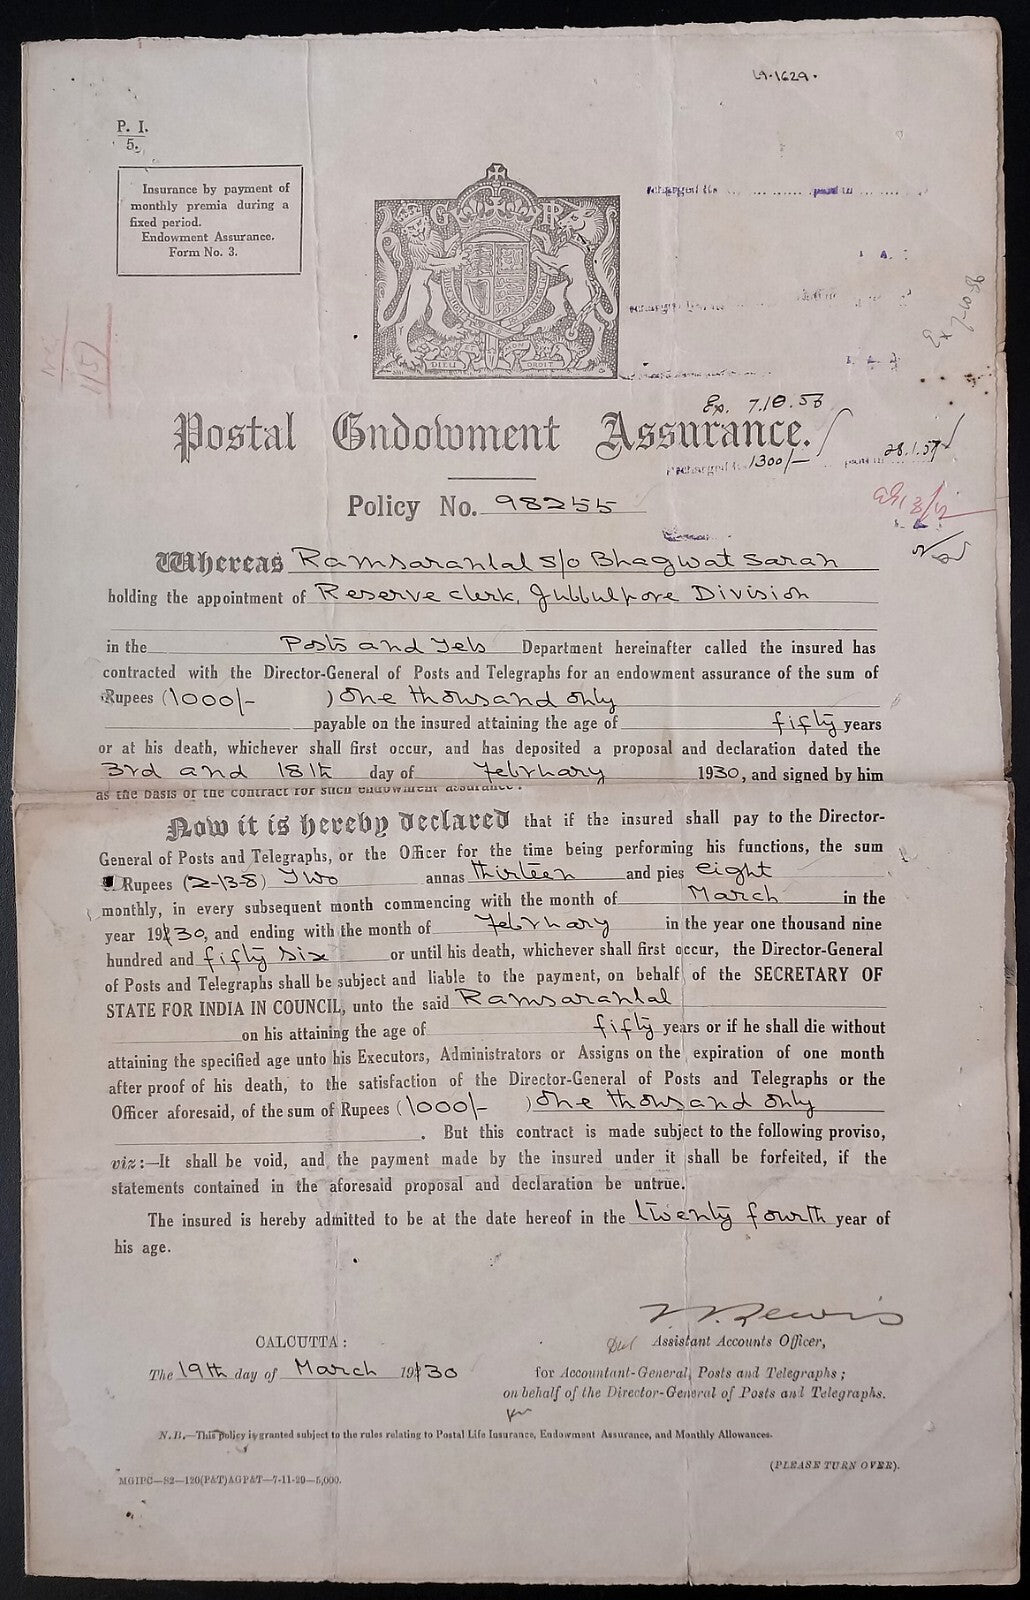 L9-1629.
P. I.
5.
Insurance by payment of
monthly premia during a
fixed period.
Endowment Assurance.
Form No. 3.
G R
DIEU ET MON DROIT
Ex 7-10-56
Ex. 7.10.56
Postal Endowment Assurance.
1300/- 28.1.57
Policy No. 98255
Whereas Ramsaranlal s/o Bhagwat Saran
holding the appointment of Reserve clerk, Jubbulpore Division
in the Posts and Tels Department hereinafter called the insured has
contracted with the Director-General of Posts and Telegraphs for an endowment assurance of the sum of
Rupees (1000/- ) One thousand only
payable on the insured attaining the age of fifty years
or at his death, whichever shall first occur, and has deposited a proposal and declaration dated the
3rd and 18th day of February 1930, and signed by him
as the basis of the contract for such endowment assurance.
Now it is hereby declared that if the insured shall pay to the Director-
General of Posts and Telegraphs, or the Officer for the time being performing his functions, the sum
Rupees (2-13-8) Two annas thirteen and pies eight
monthly, in every subsequent month commencing with the month of March in the
year 1930, and ending with the month of February in the year one thousand nine
hundred and fifty six or until his death, whichever shall first occur, the Director-General
of Posts and Telegraphs shall be subject and liable to the payment, on behalf of the SECRETARY OF
STATE FOR INDIA IN COUNCIL, unto the said Ramsaranlal
on his attaining the age of fifty years or if he shall die without
attaining the specified age unto his Executors, Administrators or Assigns on the expiration of one month
after proof of his death, to the satisfaction of the Director-General of Posts and Telegraphs or the
Officer aforesaid, of the sum of Rupees (1000/- ) One thousand only
. But this contract is made subject to the following proviso,
viz:—It shall be void, and the payment made by the insured under it shall be forfeited, if the
statements contained in the aforesaid proposal and declaration be untrue.
The insured is hereby admitted to be at the date hereof in the twenty fourth year of
his age.
CALCUTTA:
Assistant Accounts Officer,
The 19th day of March 1930
for Accountant-General, Posts and Telegraphs;
on behalf of the Director-General of Posts and Telegraphs.
N.B.—This policy is granted subject to the rules relating to Postal Life Insurance, Endowment Assurance, and Monthly Allowances.
(PLEASE TURN OVER).
MGIPC—S2—120(P&T)AGP&T—7-11-29—5,000.